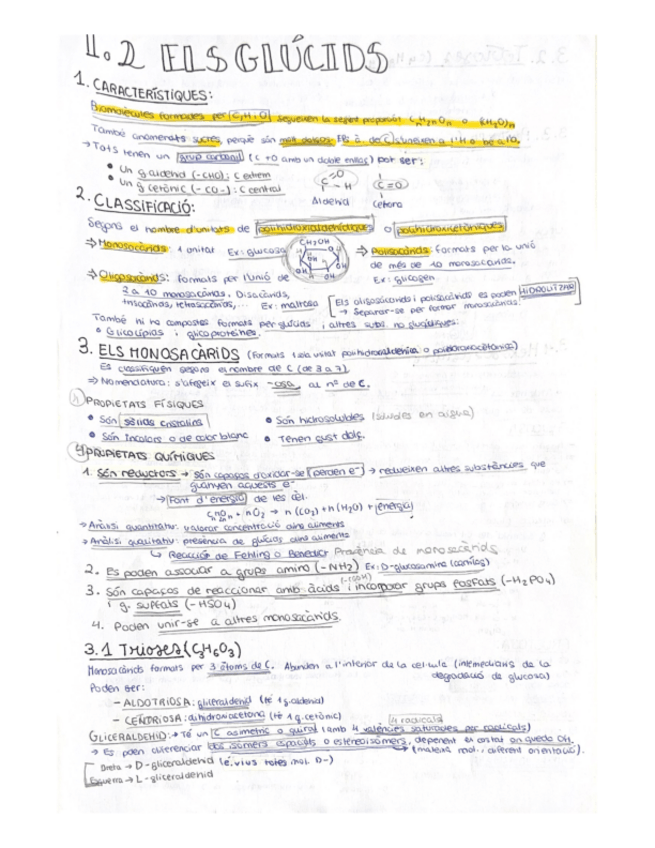 1.2 ELS GLÚCIDS
1. CARACTERÍSTIQUES:
Biomolècules formades per C, H i O, segueixen la següent proporció CnH2nOn o (CH2O)n
També anomenats sucres, perquè són molt dolços. Els à. de C s'uneixen a l'H o bé a l'O.
→ Tots tenen un grup carbonil (C + O amb un doble enllaç) pot ser:
• Un g. aldehid (-CHO): C extrem
• Un g. cetònic (-CO-): C central
C O H C=O
Aldehid Cetona
2. CLASSIFICACIÓ:
Segons el nombre d'unitats de polihidroxialdehídiques o polihidroxicetòniques
⇒ Monosacàrids: 1 unitat Ex: glucosa
CH2OH
OH OH
⇒ Polisacàrids: formats per la unió
de més de 10 monosacàrids.
Ex: glicogen
⇒ Oligosacàrids: formats per l'unió de
2 a 10 monosacàrids. Disacàrids,
trisacàrids, tetrasacàrids,... Ex: maltosa
Els oligosacàrids i polisacàrids es poden HIDROLITZAR
→ Separar-se per formar monosacàrids.
També hi ha compostos formats per glúcids i altres subs. no glucídiques:
• Glicolípids i glicoproteïnes.
3. ELS MONOSACÀRIDS (formats 1 sola unitat polihidroxialdehídica o polihidroxicetònica)
Es classifiquen segons el nombre de C (de 3 a 7).
⇒ Nomenclatura: s'afegeix el sufix -osa al nº de C.
PROPIETATS FÍSIQUES
• Són sòlids cristal·lins
• Són incolors o de color blanc
• Són hidrosolubles (solubles en aigua)
• Tenen gust dolç.
PROPIETATS QUÍMIQUES
1. Són reductors → són capaços d'oxidar-se (perden e-) → redueixen altres substàncies que
guanyen aquests e-
→ Font d'energia de les cèl.
CnH2nOn + nO2 → n(CO2) + n(H2O) + energia
→ Anàlisi quantitatiu: valorar concentració dins aliments
→ Anàlisi qualitatiu: presència de glúcids dins aliments
↳ Reacció de Fehling o Benedict Presència de monosacàrids
2. Es poden associar a grups amino (-NH2) Ex: D-glucosamina
3. Són capaços de reaccionar amb àcids (-COOH) i incorporar grups fosfats (-H2PO4)
i g. sulfats (-HSO4)
4. Poden unir-se a altres monosacàrids.
3.1 Trioses (C3H6O3)
Monosacàrids formats per 3 àtoms de C. Abunden a l'interior de la cèl·lula (intermediaris de la
degradació de glucosa)
Poden ser:
- ALDOTRIOSA: gliceraldehid (té 1 g. aldehid)
- CETOTRIOSA: dihidroxiacetona (té 1 g. cetònic)
4 radicals
GLICERALDEHID: → Té un C asimètric o quiral (amb 4 valències saturades per radicals)
→ Es poden diferenciar dos isòmers espacials o estereoisòmers, depenent el costat on quedo OH.
(mateixa mol. i diferent orientació).
Dreta → D-gliceraldehid (é. vius totes mol. D-)
Esquerra → L-gliceraldehid